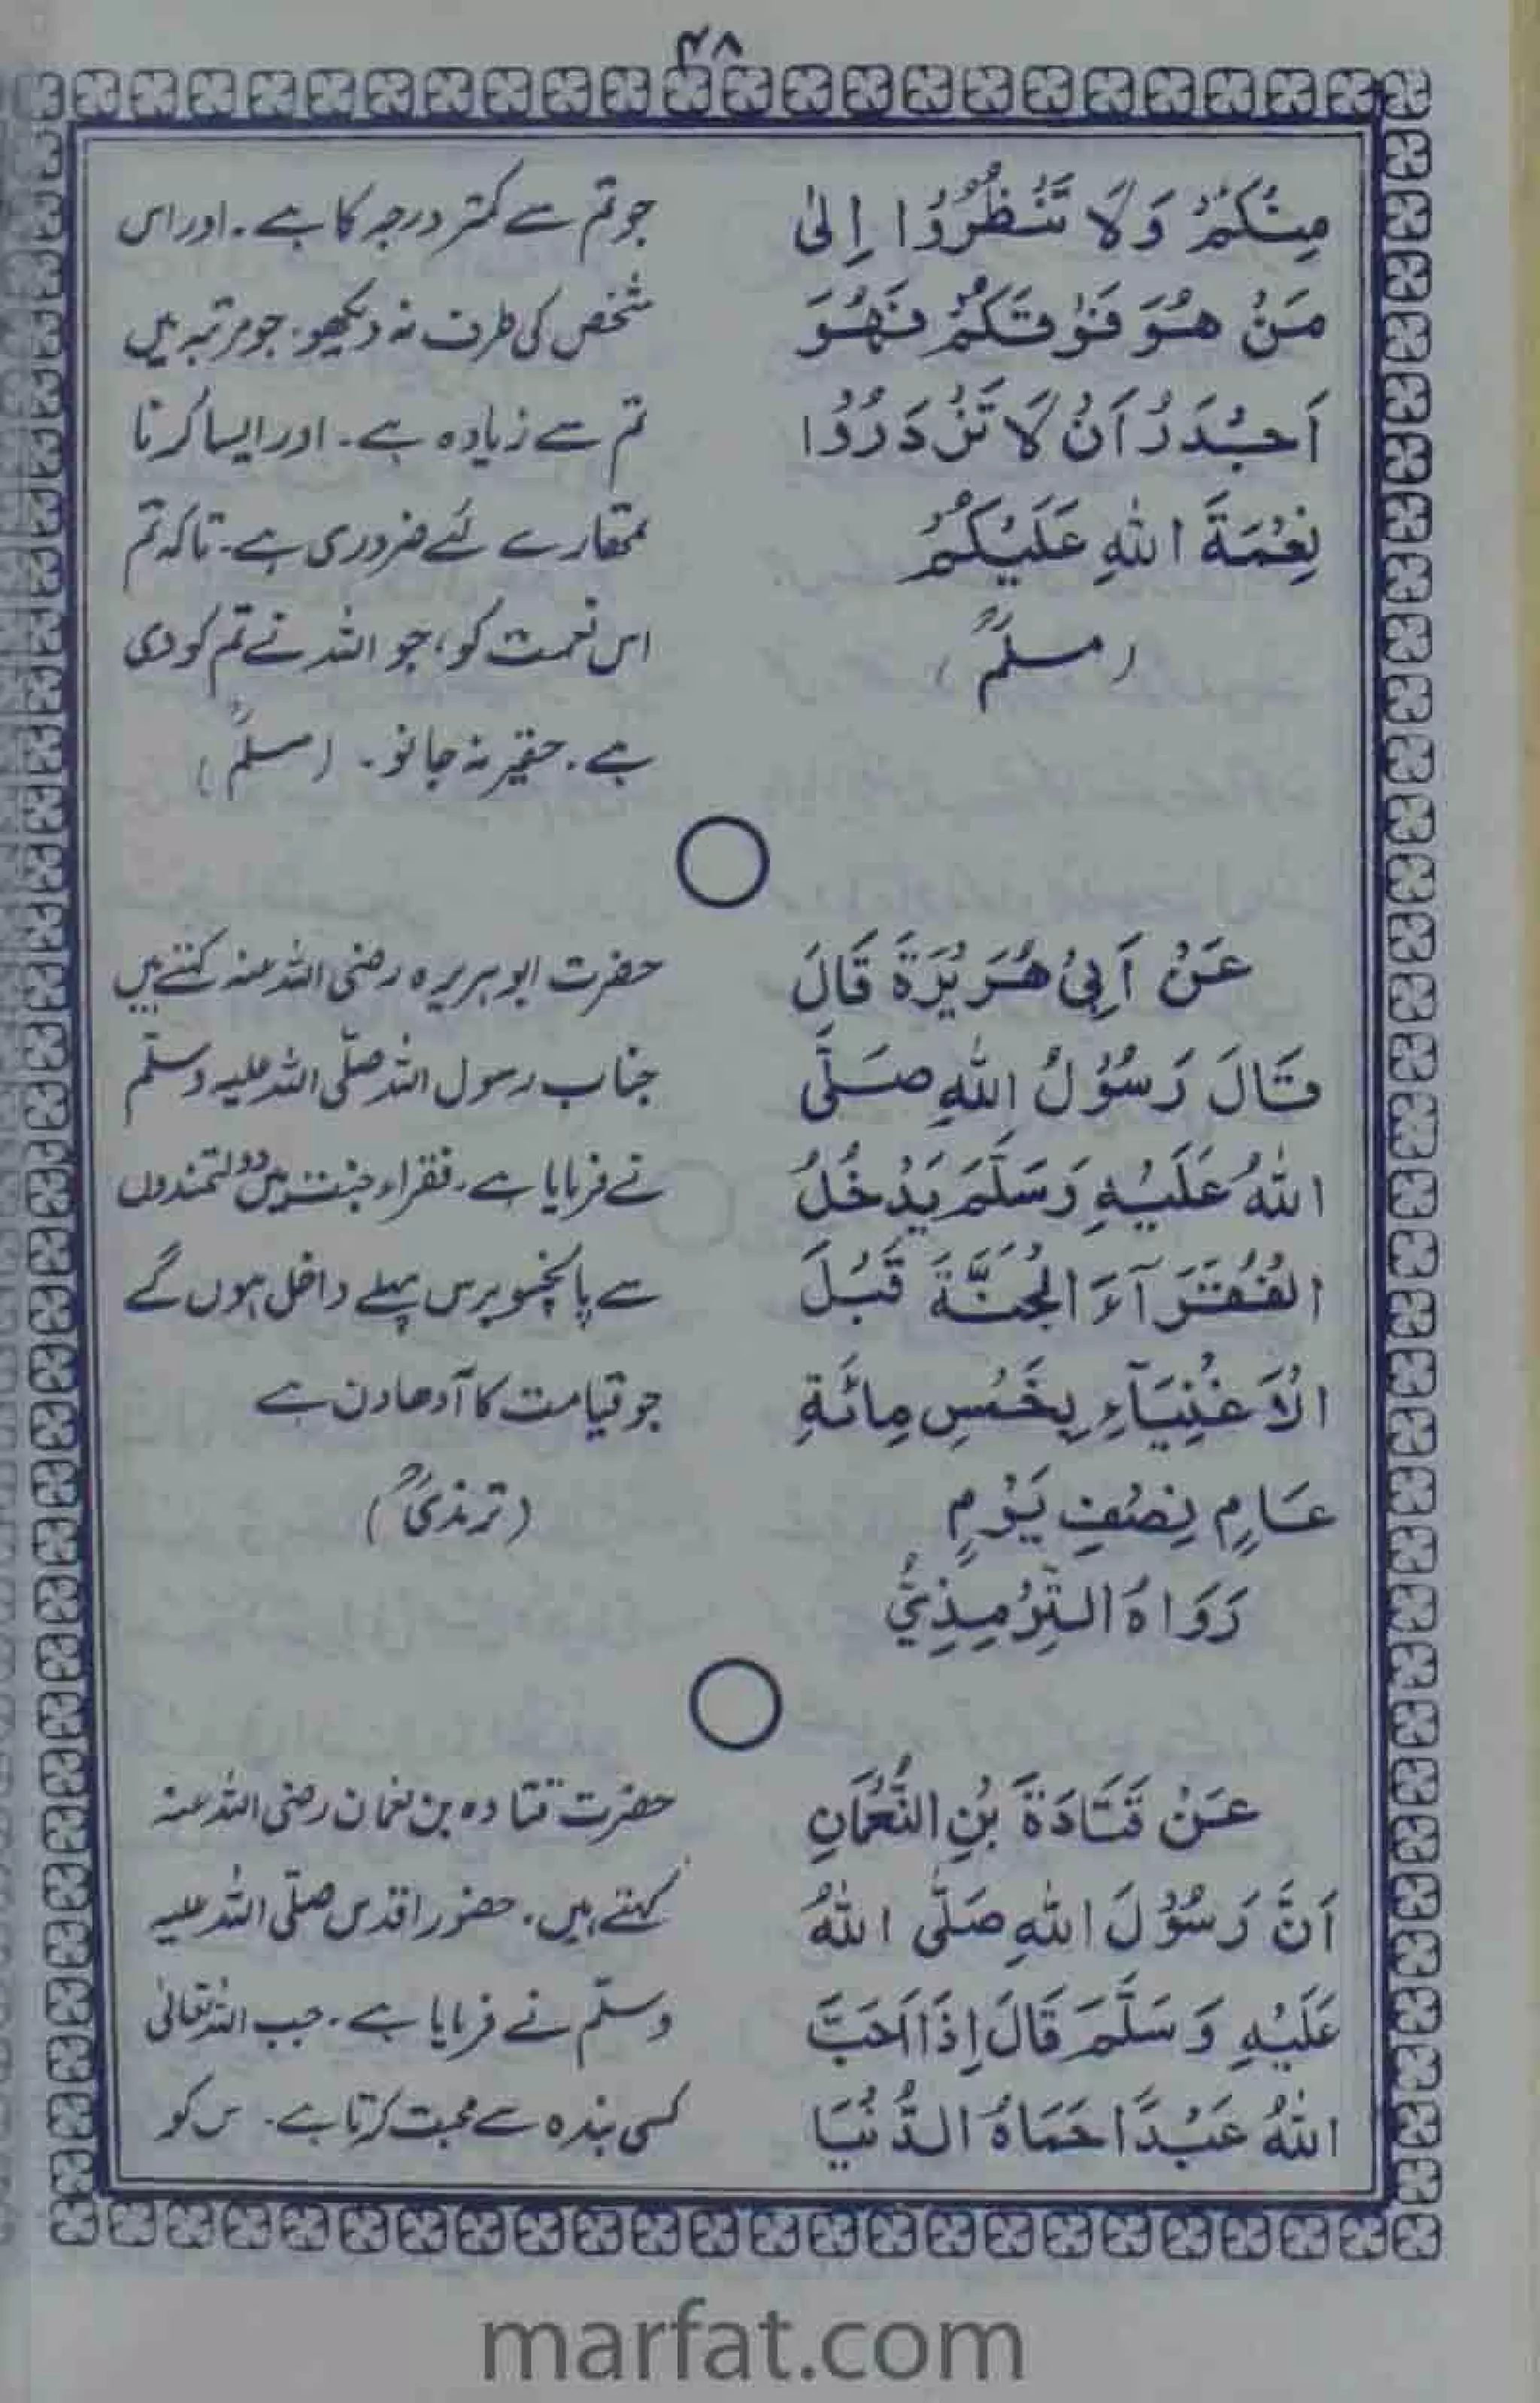 ۴۸
مِنْكُمْ وَلَا تَنْظُرُوْا اِلٰى
مَنْ هُوَ فَوْقَكُمْ فَهُوَ
اَجْدَرُ اَنْ لَا تَزْدَرُوْا
نِعْمَةَ اللهِ عَلَيْكُمْ
(مسلمؒ)
جو تم سے کمتر درجہ کا ہے۔ اور اس
شخص کی طرف نہ دیکھو۔ جو مرتبہ میں
تم سے زیادہ ہے۔ اور ایسا کرنا
تمھارے لئے ضروری ہے۔ تاکہ تم
اس نعمت کو، جو اللہ نے تم کو دی
ہے۔ حقیر نہ جانو۔ (مسلمؒ)
عَنْ اَبِيْ هُرَيْرَةَ قَالَ
قَالَ رَسُوْلُ اللهِ صَلَّى
اللهُ عَلَيْهِ وَسَلَّمَ يَدْخُلُ
الْفُقَرَآءُ الْجَنَّةَ قَبْلَ
الْاَغْنِيَآءِ بِخَمْسِ مِائَةِ
عَامٍ نِصْفِ يَوْمٍ
رَوَاهُ التِّرْمِذِيُّ
حضرت ابوہریرہ رضی اللہ عنہ کہتے ہیں
جناب رسول اللہ صلّی اللہ علیہ وسلّم
نے فرمایا ہے۔ فقراء جنت میں دولتمندوں
سے پانچسو برس پہلے داخل ہوں گے
جو قیامت کا آدھا دن ہے
(ترمذیؒ)
عَنْ قَتَادَةَ بْنِ النُّعْمَانِ
اَنَّ رَسُوْلَ اللهِ صَلَّى اللهُ
عَلَيْهِ وَسَلَّمَ قَالَ اِذَا اَحَبَّ
اللهُ عَبْدًا حَمَاهُ الدُّنْيَا
حضرت قتادہ بن نعمان رضی اللہ عنہ
کہتے ہیں۔ حضور اقدس صلّی اللہ علیہ
وسلّم نے فرمایا ہے۔ جب اللہ تعالیٰ
کسی بندہ سے محبت کرتا ہے۔ س کو
marfat.com